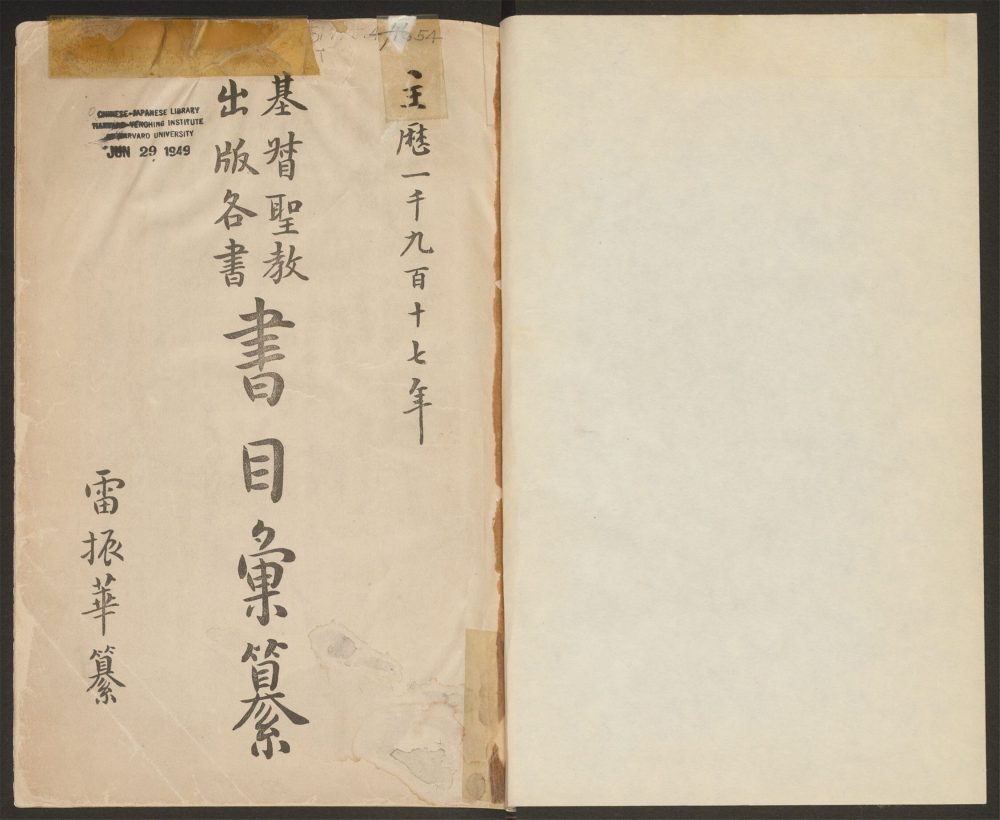 主歷一千九百十七年
基督聖教
出版各書
書目彙纂
雷振華纂
CHINESE-JAPANESE LIBRARY
HARVARD-YENCHING INSTITUTE
HARVARD UNIVERSITY
JUN 29 1949